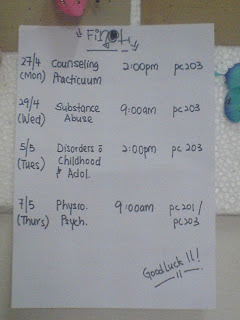 "Final"
27/4 Counseling 2:00pm pc203
(Mon) Practicuum
29/4 Substance 9:00am pc203
(Wed) Abuse
5/5 Disorders o 2:00pm pc 203
(Tues) Childhood
& Adol.
7/5 Physio. 9:00am pc201/
(Thurs) Psych. pc203
Good Luck!!!